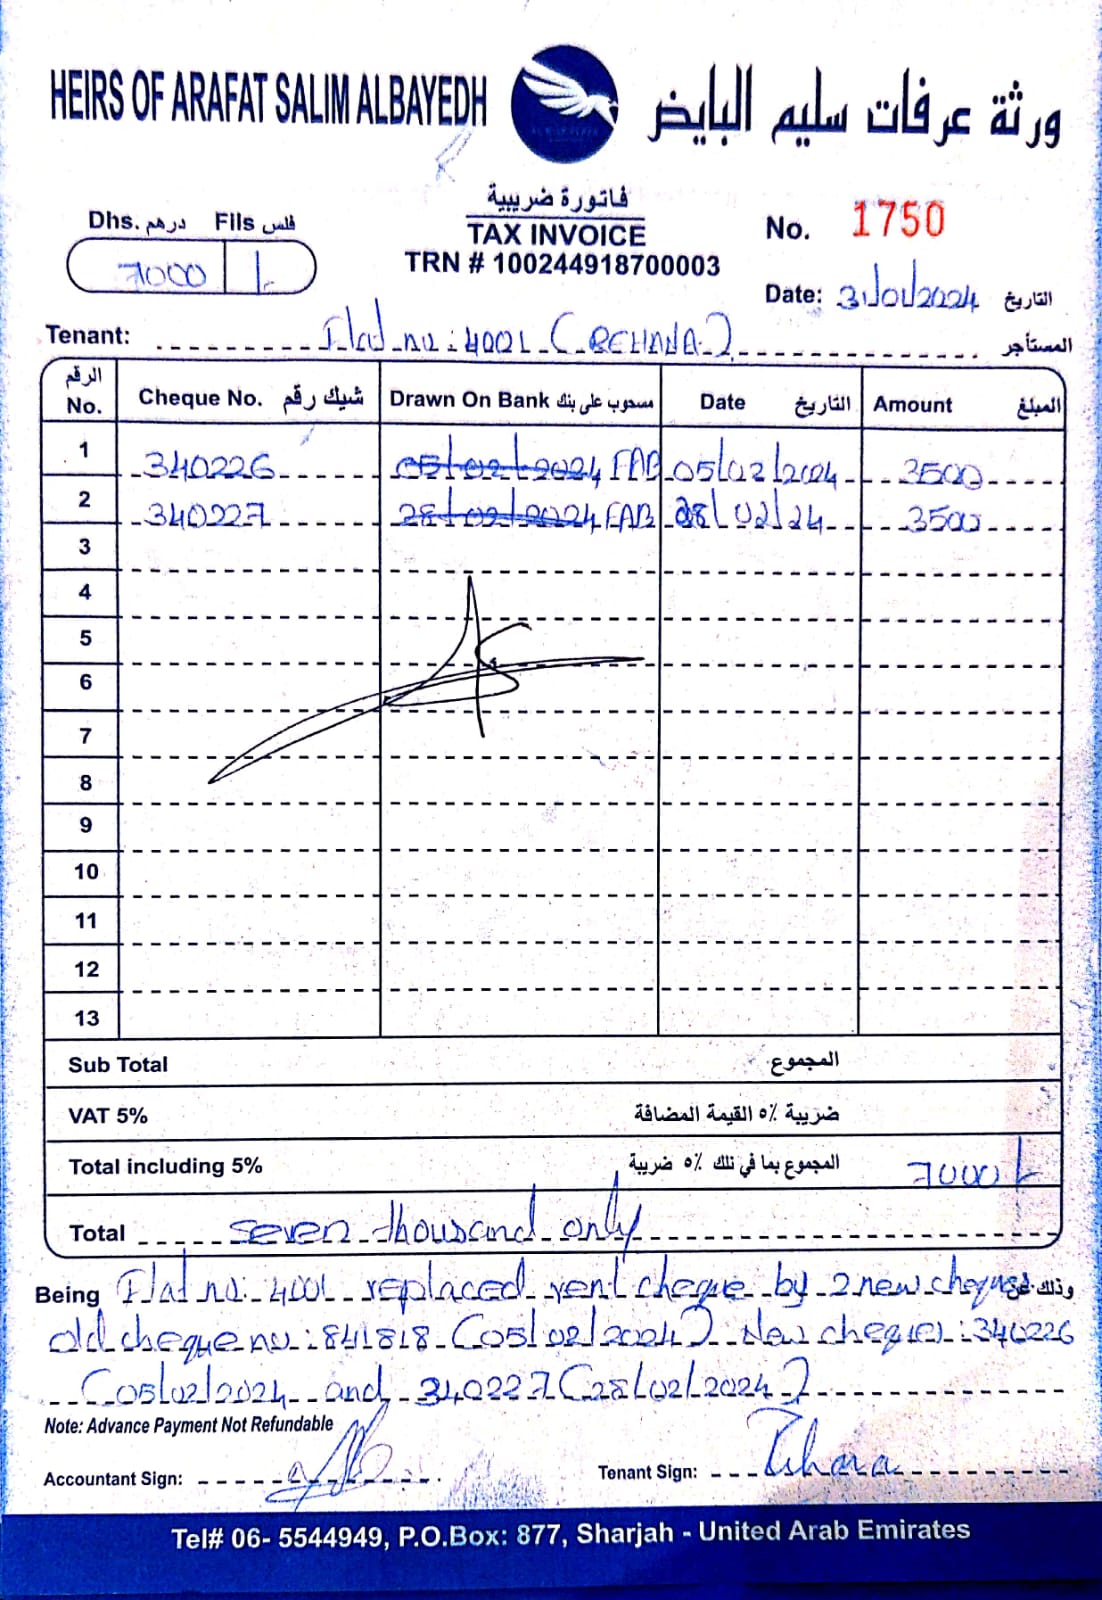 HEIRS OF ARAFAT SALIM ALBAYEDH
ورثة عرفات سليم البايض
فاتورة ضريبية
TAX INVOICE
TRN # 100244918700003
Dhs. درهم Fils فلس
7000 /-
No. 1750
Date: 31/01/2024 التاريخ
Tenant: Flat no: 4001 (REHANA) المستأجر
الرقم No. Cheque No. شيك رقم Drawn On Bank مسحوب على بنك Date التاريخ Amount المبلغ
1 340226 05/02/2024 FAB 05/02/2024 3500
2 340227 28/02/2024 FAB 28/02/24 3500
3
4
5
6
7
8
9
10
11
12
13
Sub Total المجموع
VAT 5% ضريبة ٥٪ القيمة المضافة
Total including 5% المجموع بما في ذلك ٥٪ ضريبة 7000/-
Total seven thousand only
Being Flat no: 4001 replaced rent cheque by 2 new cheques وذلك عن
old cheque no: 841818 (05/02/2024) New cheques: 340226
(05/02/2024 and 340227 (28/02/2024)
Note: Advance Payment Not Refundable
Accountant Sign:
Tenant Sign:
Tel# 06- 5544949, P.O.Box: 877, Sharjah - United Arab Emirates